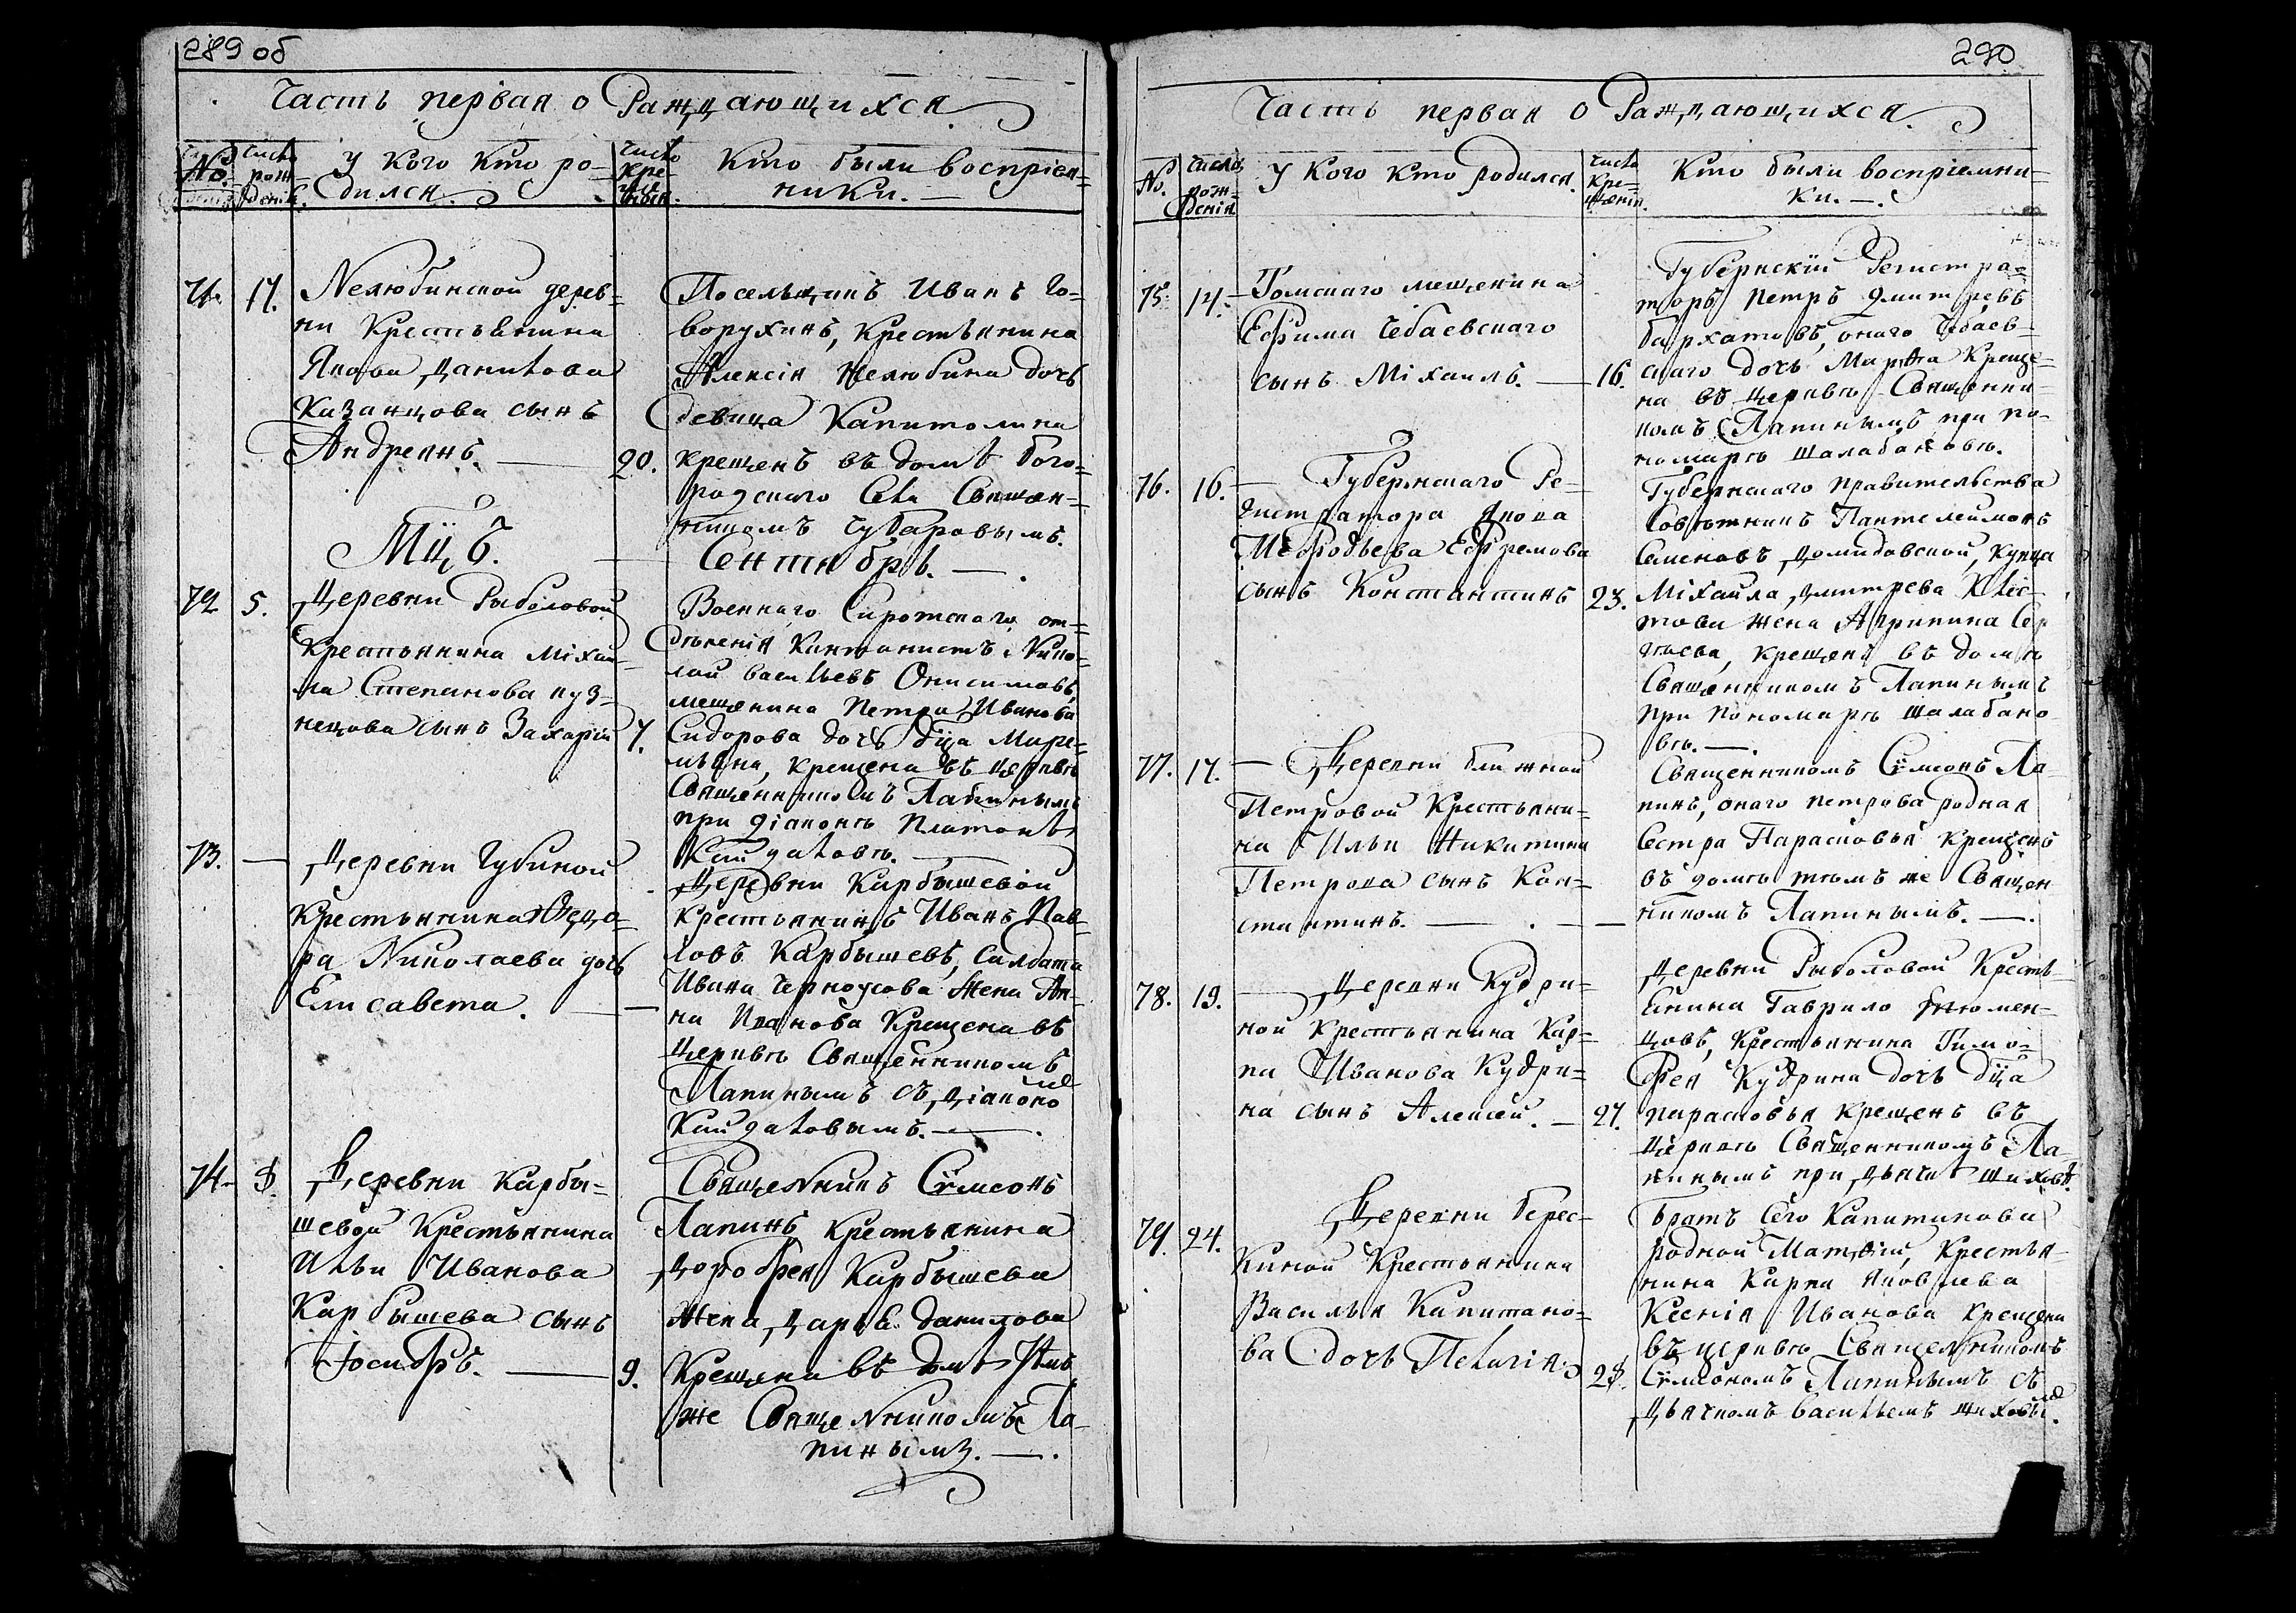 289 об
Часть первая о Раждающихся
No.
число
рож-
денія.
У кого кто ро-
дился.
число
кре-
щенія.
Кто были воспріем-
ники. —
71.
17.
Нелюбинской дерев-
ни Крестьянина
Якова Данилова
Казанцова сынъ
Андреянъ. —
20.
Посельщикъ Иванъ Го-
ворухинъ, Крестьянина
Алексія Нелюбина дочь
девица Капитолина
крещенъ въ домѣ бого-
родскаго Села Священ-
никомъ Чубаровымъ.
Мцъ. — Сентябрь. —.
72
5.
Деревни Рыболовой
Крестьянина Міхай-
ла Степанова куз-
нецова сынъ Захарій
7.
Военнаго Сиротскаго от-
дѣленія Кантонистъ Нико-
лай васильевъ Онисимовъ,
мещанина Петра Иванова
Сидорова дочь дѣца Маре-
мьяна, крещена въ церквѣ
Священникомъ Лапинымъ
при діаконѣ Платонѣ
Кайдаловѣ. —
73.
—
Деревни Губиной
Крестьянина Ѳедо-
ра Николаева дочь
Елисавета. —
Деревни Карбышевой
Крестьянинъ Иванъ Пав-
ловъ Карбышевъ, Салдата
Ивана Черноусова Жена Ан-
на Иванова Крещена въ
Церквѣ Священникомъ
Лапинымъ съ діаконо
мъ
Кайдаловымъ. —.
74.
8.
Деревни Карбы-
шевой Крестьянина
Ильи Иванова
Карбышева сынъ
Іосифъ. —
9.
Священникъ Сѵмеонъ
Лапинъ, Крестьянина
Дорофея Карбышева
Жена Дарья Данилова
Крещена въ домѣ Имъ
же Священникомъ Ла-
пинымъ. —.
290
Часть первая о Раждающихся.
No.
число
рож-
денія
У кого кто родился.
число
кре-
щенія.
Кто были воспріемни-
ки. —.
75.
14.
— Томскаго мещенина
Ефима Чебаевскаго
сынъ Міхаилъ. —
16.
Губернскій Регистра-
торъ Петръ Дмитревъ
бархатовъ, онаго Чебаев-
скаго дочь Марѳа Креще-
на въ Церквѣ Священни-
комъ Лапинымъ при по-
номарѣ Шалабановѣ.
76.
16.
— Губернскаго Ре-
гистратора Якова
Меѳодьева Ефремова
сынъ Константинъ
23.
Губернскаго правительства
Совѣтникъ Пантелеймонъ
Семеновъ Домидовской, купца
Міхайла Дмитрева
жена Агрипина Сер
гѣева, крещенъ въ домѣ
Священникомъ Лапинымъ
при пономарѣ Шалабано-
вѣ. —.
77.
17.
— Деревни ближной
Петровой Крестьяни-
на Ильи Никитина
Петрова сынъ Кон-
стантинъ. — . —
Священникомъ Сѵмеонъ Ла-
пинъ, онаго петрова родная
Сестра Парасковья Крещенъ
въ домѣ тѣмъ же Священ
никомъ Лапинымъ. —.
78.
19.
— Деревни Кудри-
ной Крестьянина Кар-
па Иванова Кудри-
на сынъ Алексей. —
27.
Деревни Рыболовой Кресть-
янина Гаврило тюмен-
цовъ, Крестьянина Тимо-
фея Кудрина дочь дѣца
парасковья крещенъ въ
церквѣ Священникомъ Ла-
пинымъ при дьячкѣ Шиховѣ.
79.
24.
Деревни берес-
киной Крестьянина
Василья Капитано-
ва дочь Пелагія.
28.
Братъ Сего Капитанова
родной Матѳій, Крестья-
нина Карпа Яковлева
Ксенія Иванова Крещена
въ церквѣ Священникомъ
Сѵмеономъ Лапинымъ съ
Дьячкомъ васильемъ Шиховы
мъ.